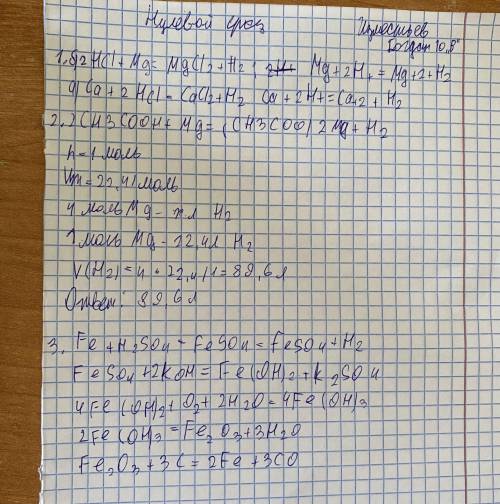 Нулевой срез
Изместьев Богдан 10 "Б"
1. б) 2HCl + Mg = MgCl2 + H2; Mg + 2H+ = Mg+2 + H2
д) Ca + 2HCl = CaCl2 + H2 Ca + 2H+ = Ca+2 + H2
2. 2CH3COOH + Mg = (CH3COO)2Mg + H2
n = 1 моль
Vm = 22,4 л/моль
4 моль Mg - x л H2
1 моль Mg - 22,4 л H2
V(H2) = 4 * 22,4/1 = 89,6 л
Ответ: 89,6 л
3. Fe + H2SO4 = FeSO4 = FeSO4 + H2
FeSO4 + 2KOH = Fe(OH)2 + K2SO4
4Fe(OH)2 + O2 + 2H2O = 4Fe(OH)3
2Fe(OH)3 = Fe2O3 + 3H2O
Fe2O3 + 3C = 2Fe + 3CO